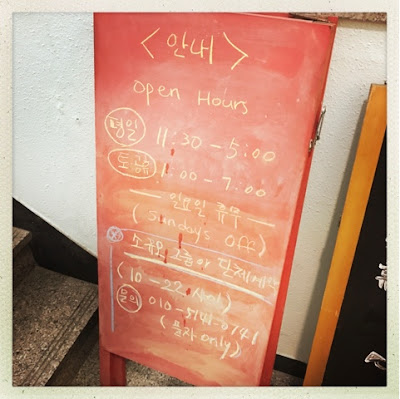 <안내>
Open Hours
평일 11:30-5:00
토·공휴 1:00-7:00
일요일 휴무
(Sunday's Off)
소규모 소품 단체
(10-22 사이)
문의 010-5141-0741
(문자 only)